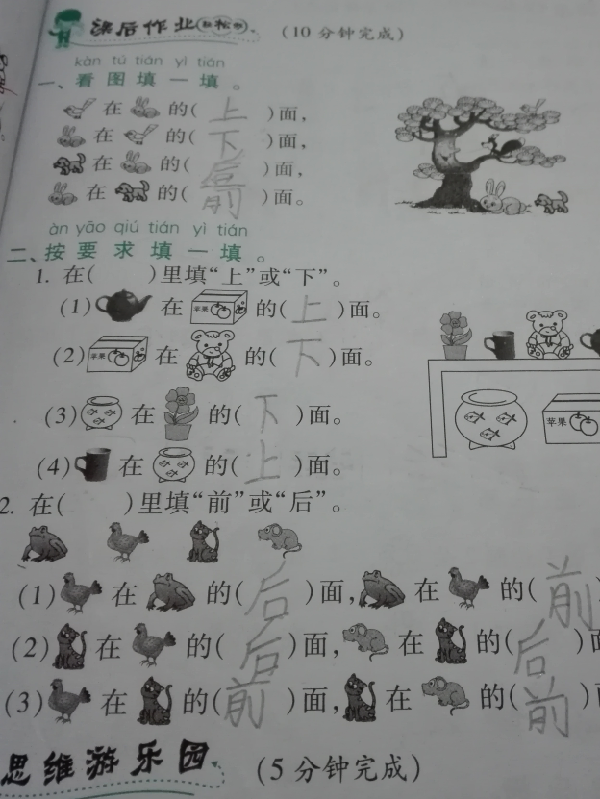 课后作业 (10分钟完成)
kàn tú tián yì tián
一、看图填一填。
在 的( 上 )面,
在 的( 下 )面,
在 的( 后 )面,
在 的( 前 )面。
àn yāo qiú tián yì tián
二、按要求填一填。
1. 在( )里填“上”或“下”。
(1) 在 苹果 的( 上 )面。
(2) 苹果 在 的( 下 )面。
(3) 在 的( 下 )面。
(4) 在 的( 上 )面。
苹果
2. 在( )里填“前”或“后”。
(1) 在 的( 后 )面, 在 的( 前
(2) 在 的( 后 )面, 在 的( 后 )面
(3) 在 的( 前 )面, 在 的( 前 )面
思维游乐园 (5分钟完成)